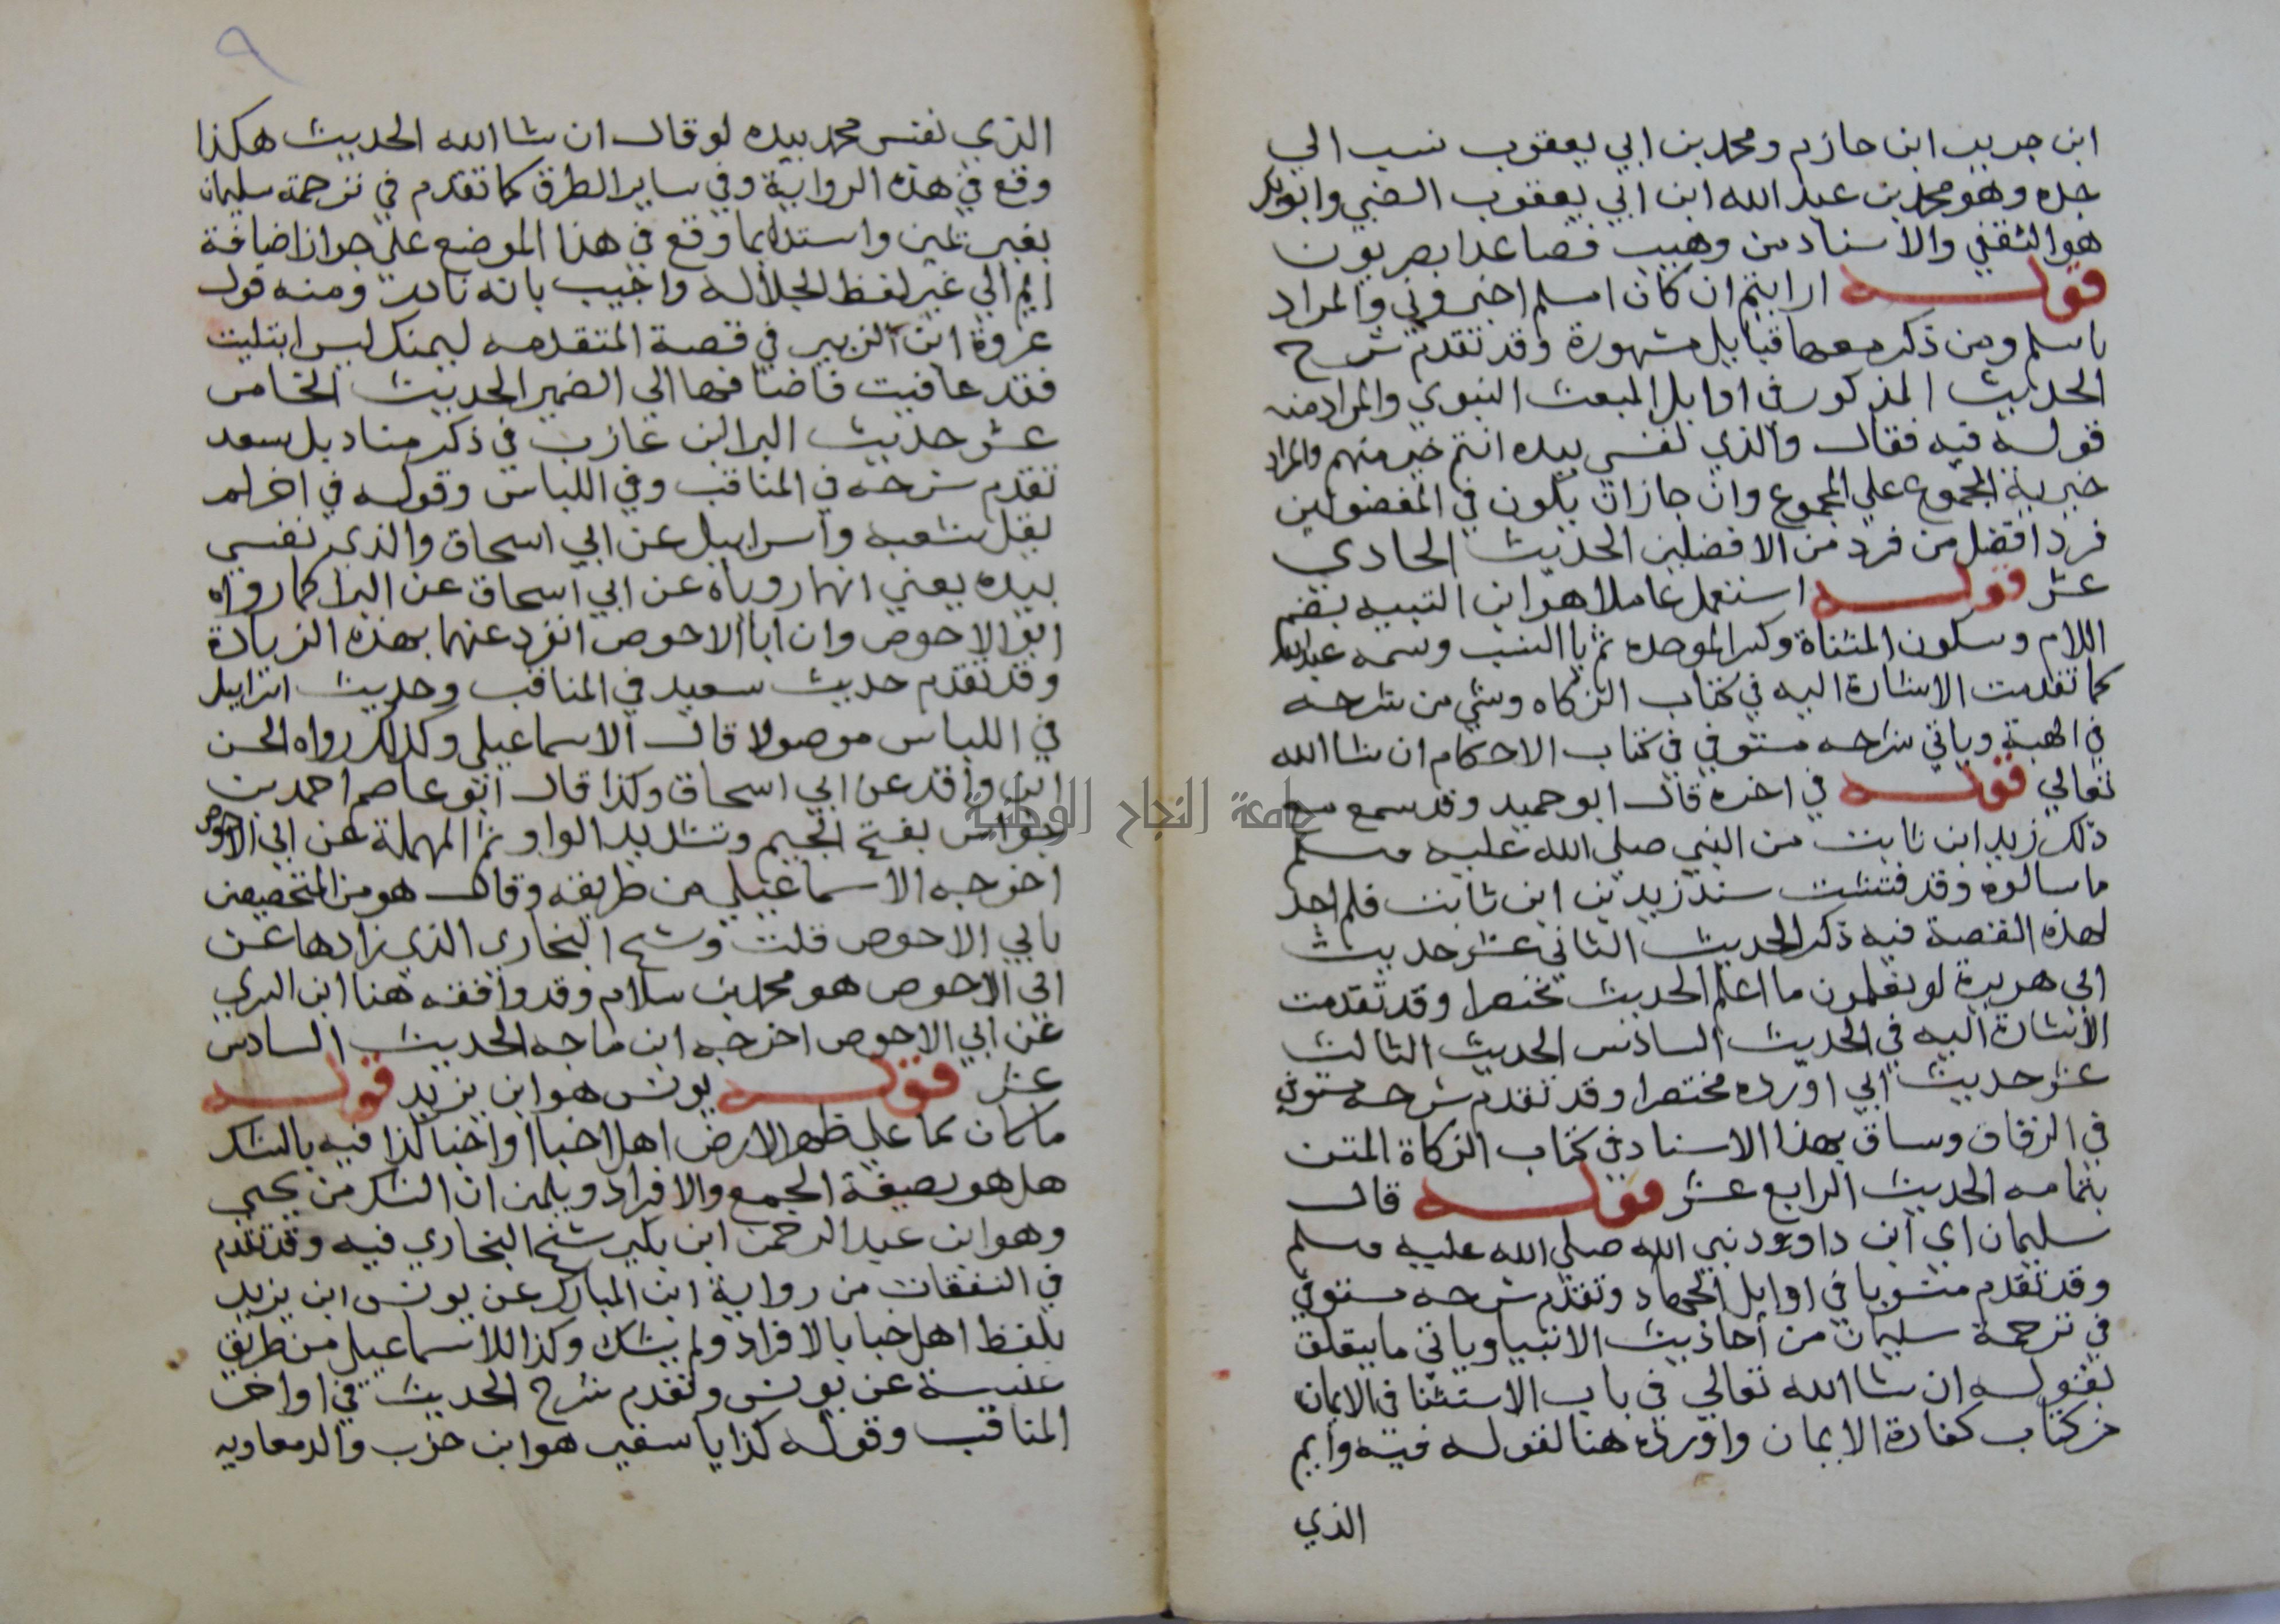 ابن جرير ابن حازم ومحمد بن ابي يعقوب نسب الي
جده وهو محمد بن عبد الله ابن ابي يعقوب الضبي وابو بكر
هو الثقفي والاسناد من وهيب فصاعدا بصريون
قوله ارايتم ان كان اسلم اخبروني والمراد
باسلم ومن ذكر معها قبايل مشهورة وقد تقدم شرح
الحديث المذكور في اوايل المبعث النبوي والمراد منه
قوله فيه فقال والذي نفسي بيده انتم خير منهم والمراد
خيرية المجموع علي المجموع وان جاز ان يكون في المفضولين
فرد افضل من فرد من الافضلين الحديث الحادي
عشر قوله استعمل عاملا هو ابن اللتبيه بضم
اللام وسكون المثناة وكسر الموحده ثم يا النسب وسمه عبد الله
كما تقدمت الاشارة اليه في كتاب الزكاه وشي من شرحه
في الهبة وياتي شرحه مستوفي في كتاب الاحكام ان شا الله
تعالي قوله في اخره قال ابو حميد وقد سمع
ذلك زيد ابن ثابت من النبي صلي الله عليه وسلم
ما سالوه وقد فتشت سند زيد بن ابن ثابت فلم اجد
لهذه القصة فيه ذكر الحديث الثاني عشر حديث
ابي هريرة لو تعلمون ما اعلم الحديث مختصرا وقد تقدمت
الاشارة اليه في الحديث السادس الحديث الثالث
عشر حديث ابي اورده مختصرا وقد تقدم شرحه مستوفي
في الرقاق وساق بهذا الاسناد في كتاب الزكاة المتن
بتمامه الحديث الرابع عشر قوله قال
سليمان اي ابن داوود نبي الله صلي الله عليه وسلم
وقد تقدم منسوبا في اوايل الجهاد وتقدم شرحه مستوفي
في ترجمة سليمان من احاديث الانبيا وياتي ما يتعلق
بقوله ان شا الله تعالي في باب الاستثنا في الايمان
من كتاب كفارة الايمان واورده هنا لقوله فيه وايم
الذي
٩
الذي نفس محمد بيده لو قال ان شا الله الحديث هكذا
وقع في هذه الرواية وفي ساير الطرق كما تقدم في ترجمة سليمان
بغير يمين واستدل بما وقع في هذا الموضع علي جواز اضافة
ايم الي غير لفظ الجلالة واجيب بانه نادر ومنه قول
عروة ابن الزبير في قصة المتقدمه ليمنك ليس ابتليت
فقد عافيت فاضافها الي الضمير الحديث الخامس
عشر حديث البرا ابن عازب في ذكر مناديل سعد
تقدم شرحه في المناقب وفي اللباس وقوله في اخر لم
يقل شعبه واسراييل عن ابي اسحاق والذي نفسي
بيده يعني انهما روياه عن ابي اسحاق عن البرا كما رواه
ابو الاحوص وان ابا الاحوص انفرد عنهما بهذه الزيادة
وقد تقدم حديث سعيد في المناقب وحديث اسراييل
في اللباس موصولا قال الاسماعيلي وكذلك رواه الحسن
ابن واقد عن ابي اسحاق وكذا قال ابو عاصم احمد بن
جواس بفتح الجيم وتشديد الواو ثم المهملة عن ابي الاحوص
اخرجه الاسماعيلي من طريقه وقال هو من المتخصصين
بابي الاحوص قلت وشيخ البخاري الذي زادها عن
ابي الاحوص هو محمد بن سلام وقد وافقه هنا ابن السري
عن ابي الاحوص اخرجه ابن ماجه الحديث السادس
عشر قوله يونس هو ابن يزيد قوله
ما كان مما علي ظهر الارض اهل اخبا او اخبا كذا فيه بالشك
هل هو بصيغة الجمع والافراد وبين ان الشك من يحيي
وهو ابن عبد الرحمن ابن بكير شيخ البخاري فيه وقد تقدم
في النفقات من رواية ابن المبارك عن يونس ابن يزيد
بلفظ اهل خبا بالافراد ولم يشك وكذا للاسماعيلي من طريق
عنبسة عن يونس وتقدم شرح الحديث في اواخر
المناقب وقوله كذا يا سفين هو ابن حرب والد معاويه
جامعة النجاح الوطنية